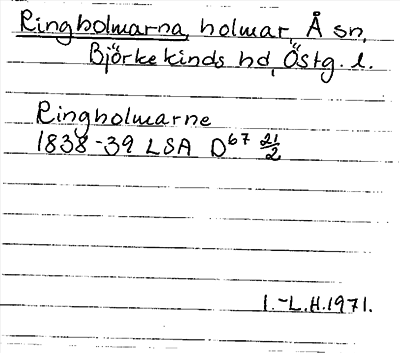 Ringholmarna, holmar, Å sn,
Björkekinds hd, Östg. l.
Ringholmarne
1838-39 LSA D67 21/2
I.-L.H.1971.